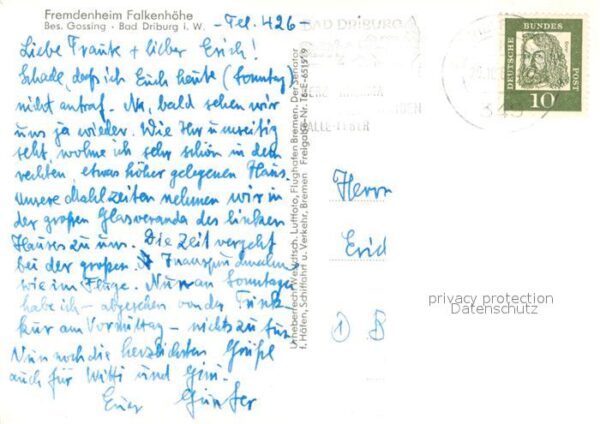 Fremdenheim Falkenhöhe
Bes. Gossing · Bad Driburg i. W. - Tel. 426 -
Liebe Traute + lieber Erich!
Schade, dass ich Euch heute (Sonntag)
nicht antraf. Na, bald sehen wir
uns ja wieder. Wie Ihr umseitig
seht, wohne ich sehr schön in dem
rechten, etwas höher gelegenen Haus.
Unsere Mahlzeiten nehmen wir in
der großen Glasveranda des linken
Hauses zu uns. Die Zeit vergeht
bei der großen
wie im Fluge. Nur an Sonntagen
habe ich - abgesehen von der Trink-
kur am Vormittag - nichts zu tun.
Nun noch die herzlichsten Grüße
auch für Witti und
Euer Günter
Urheberrecht Westdtsch. Luftfoto, Flughafen Bremen. Der Senator
f. Häfen, Schiffahrt u. Verkehr, Bremen Freigabe-Nr.
BAD DRIBURG
HERZ
GALLE-LEBER
DEUTSCHE
BUNDES
POST
10
Herrn
Erich
privacy protection
Datenschutz